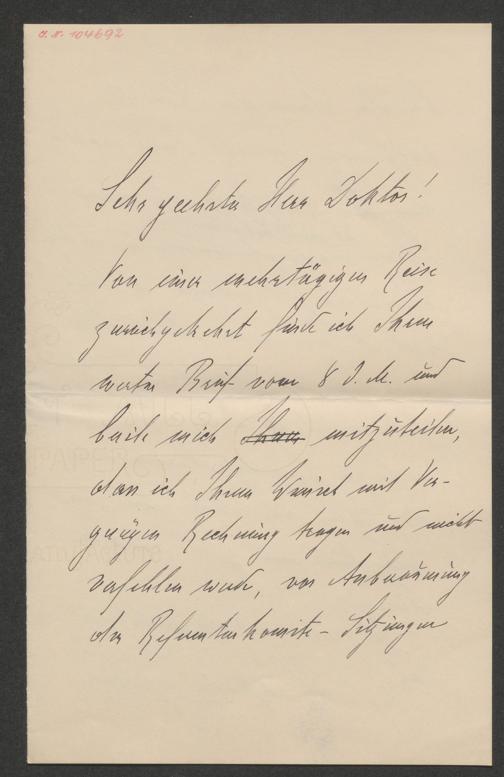 J. N. 104692
Sehr geehrter Herr Doktor!
Von einer mehrtägigen Reise
zurückgekehrt finde ich Ihren
werten Brief vom 8 d. M. und
beeile mich Ihnen mitzuteilen,
dass ich Ihrem Wunsch mit Ver-
gnügen Rechnung tragen und nicht
verfehlen werde, vor Anberaumung
der Referentenkomite-Sitzungen